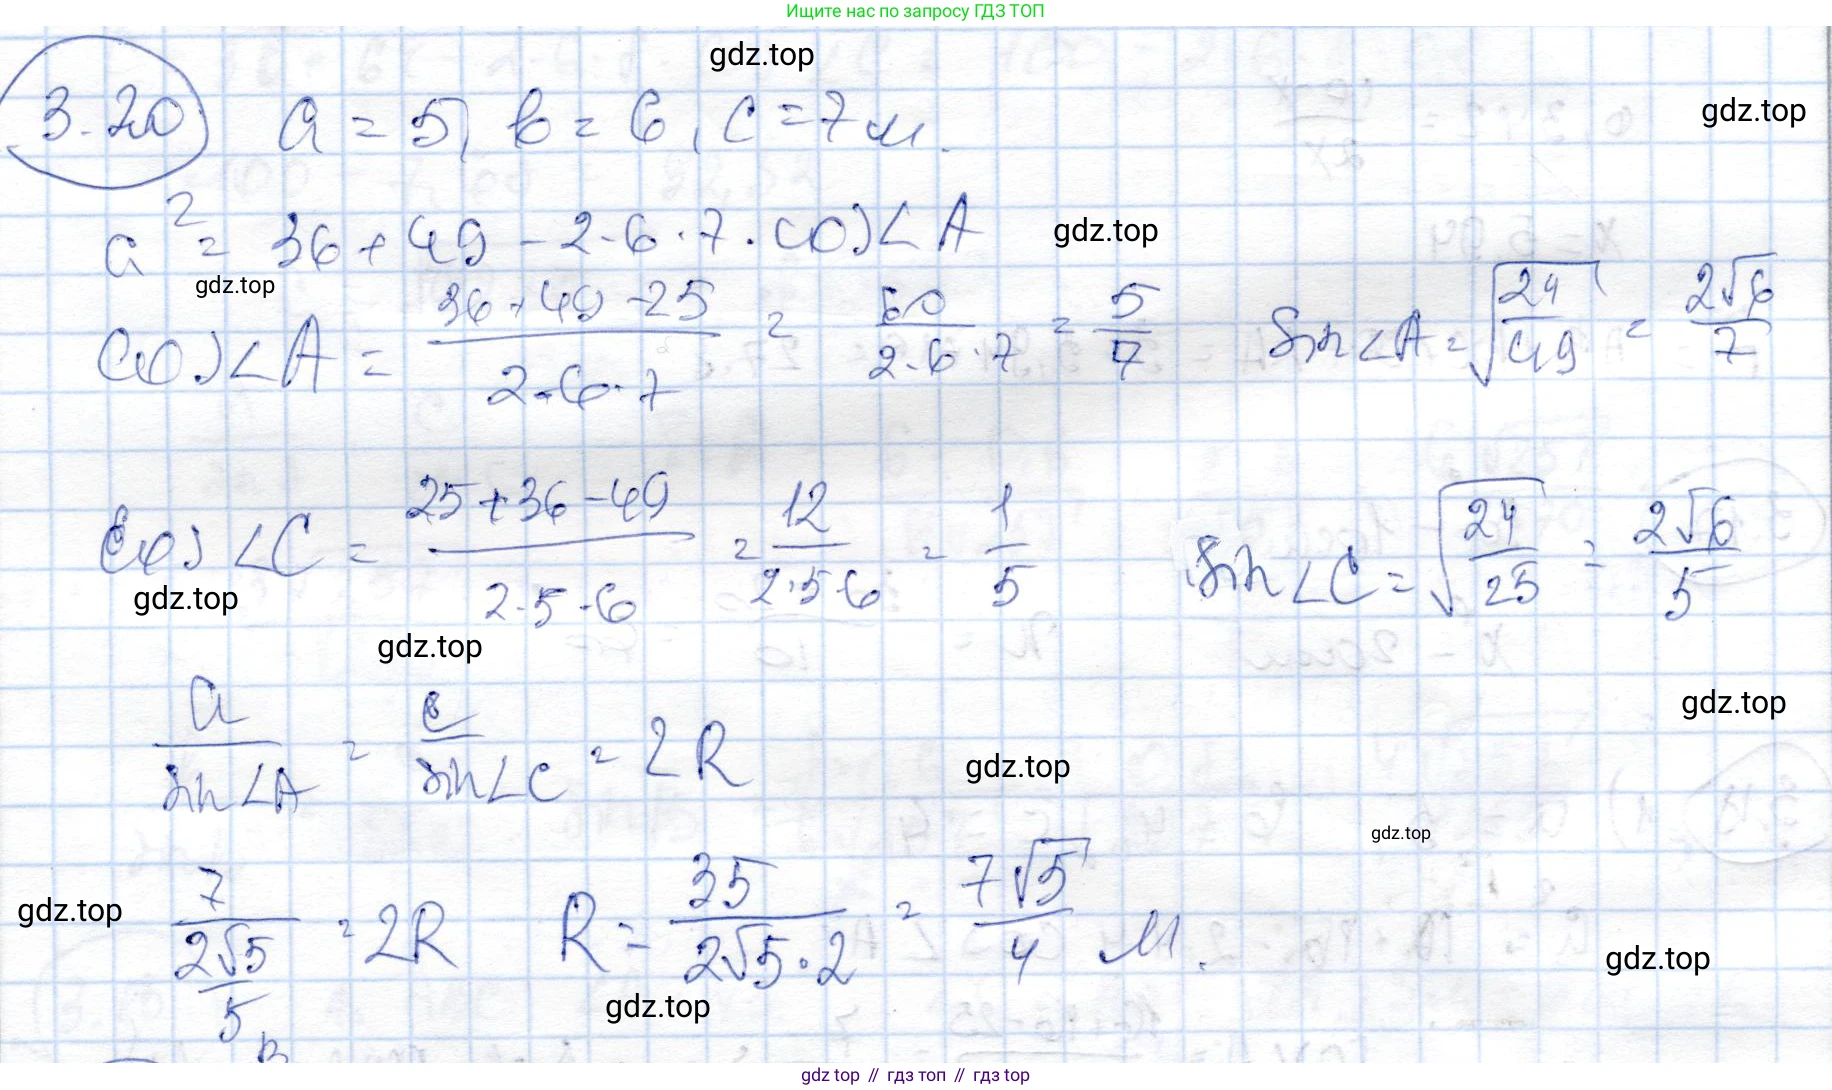 Ищите нас по запросу ГДЗ ТОП
gdz.top
3.20 a = 5, b = 6, c = 7 м.
gdz.top
a² = 36 + 49 - 2·6·7·cos∠A
gdz.top
gdz.top
cos∠A = (36+49-25)/(2·6·7) = 60/(2·6·7) = 5/7 sin∠A = √(24/49) = 2√6/7
cos∠C = (25+36-49)/(2·5·6) = 12/(2·5·6) = 1/5 sin∠C = √(24/25) = 2√6/5
gdz.top
gdz.top
gdz.top
a/sin∠A = c/sin∠C = 2R
gdz.top
gdz.top
7/(2√5/5) = 2R R = 35/(2√5·2) = 7√5/4 м.
gdz.top
gdz.top
gdz.top
gdz top // гдз топ // гдз top